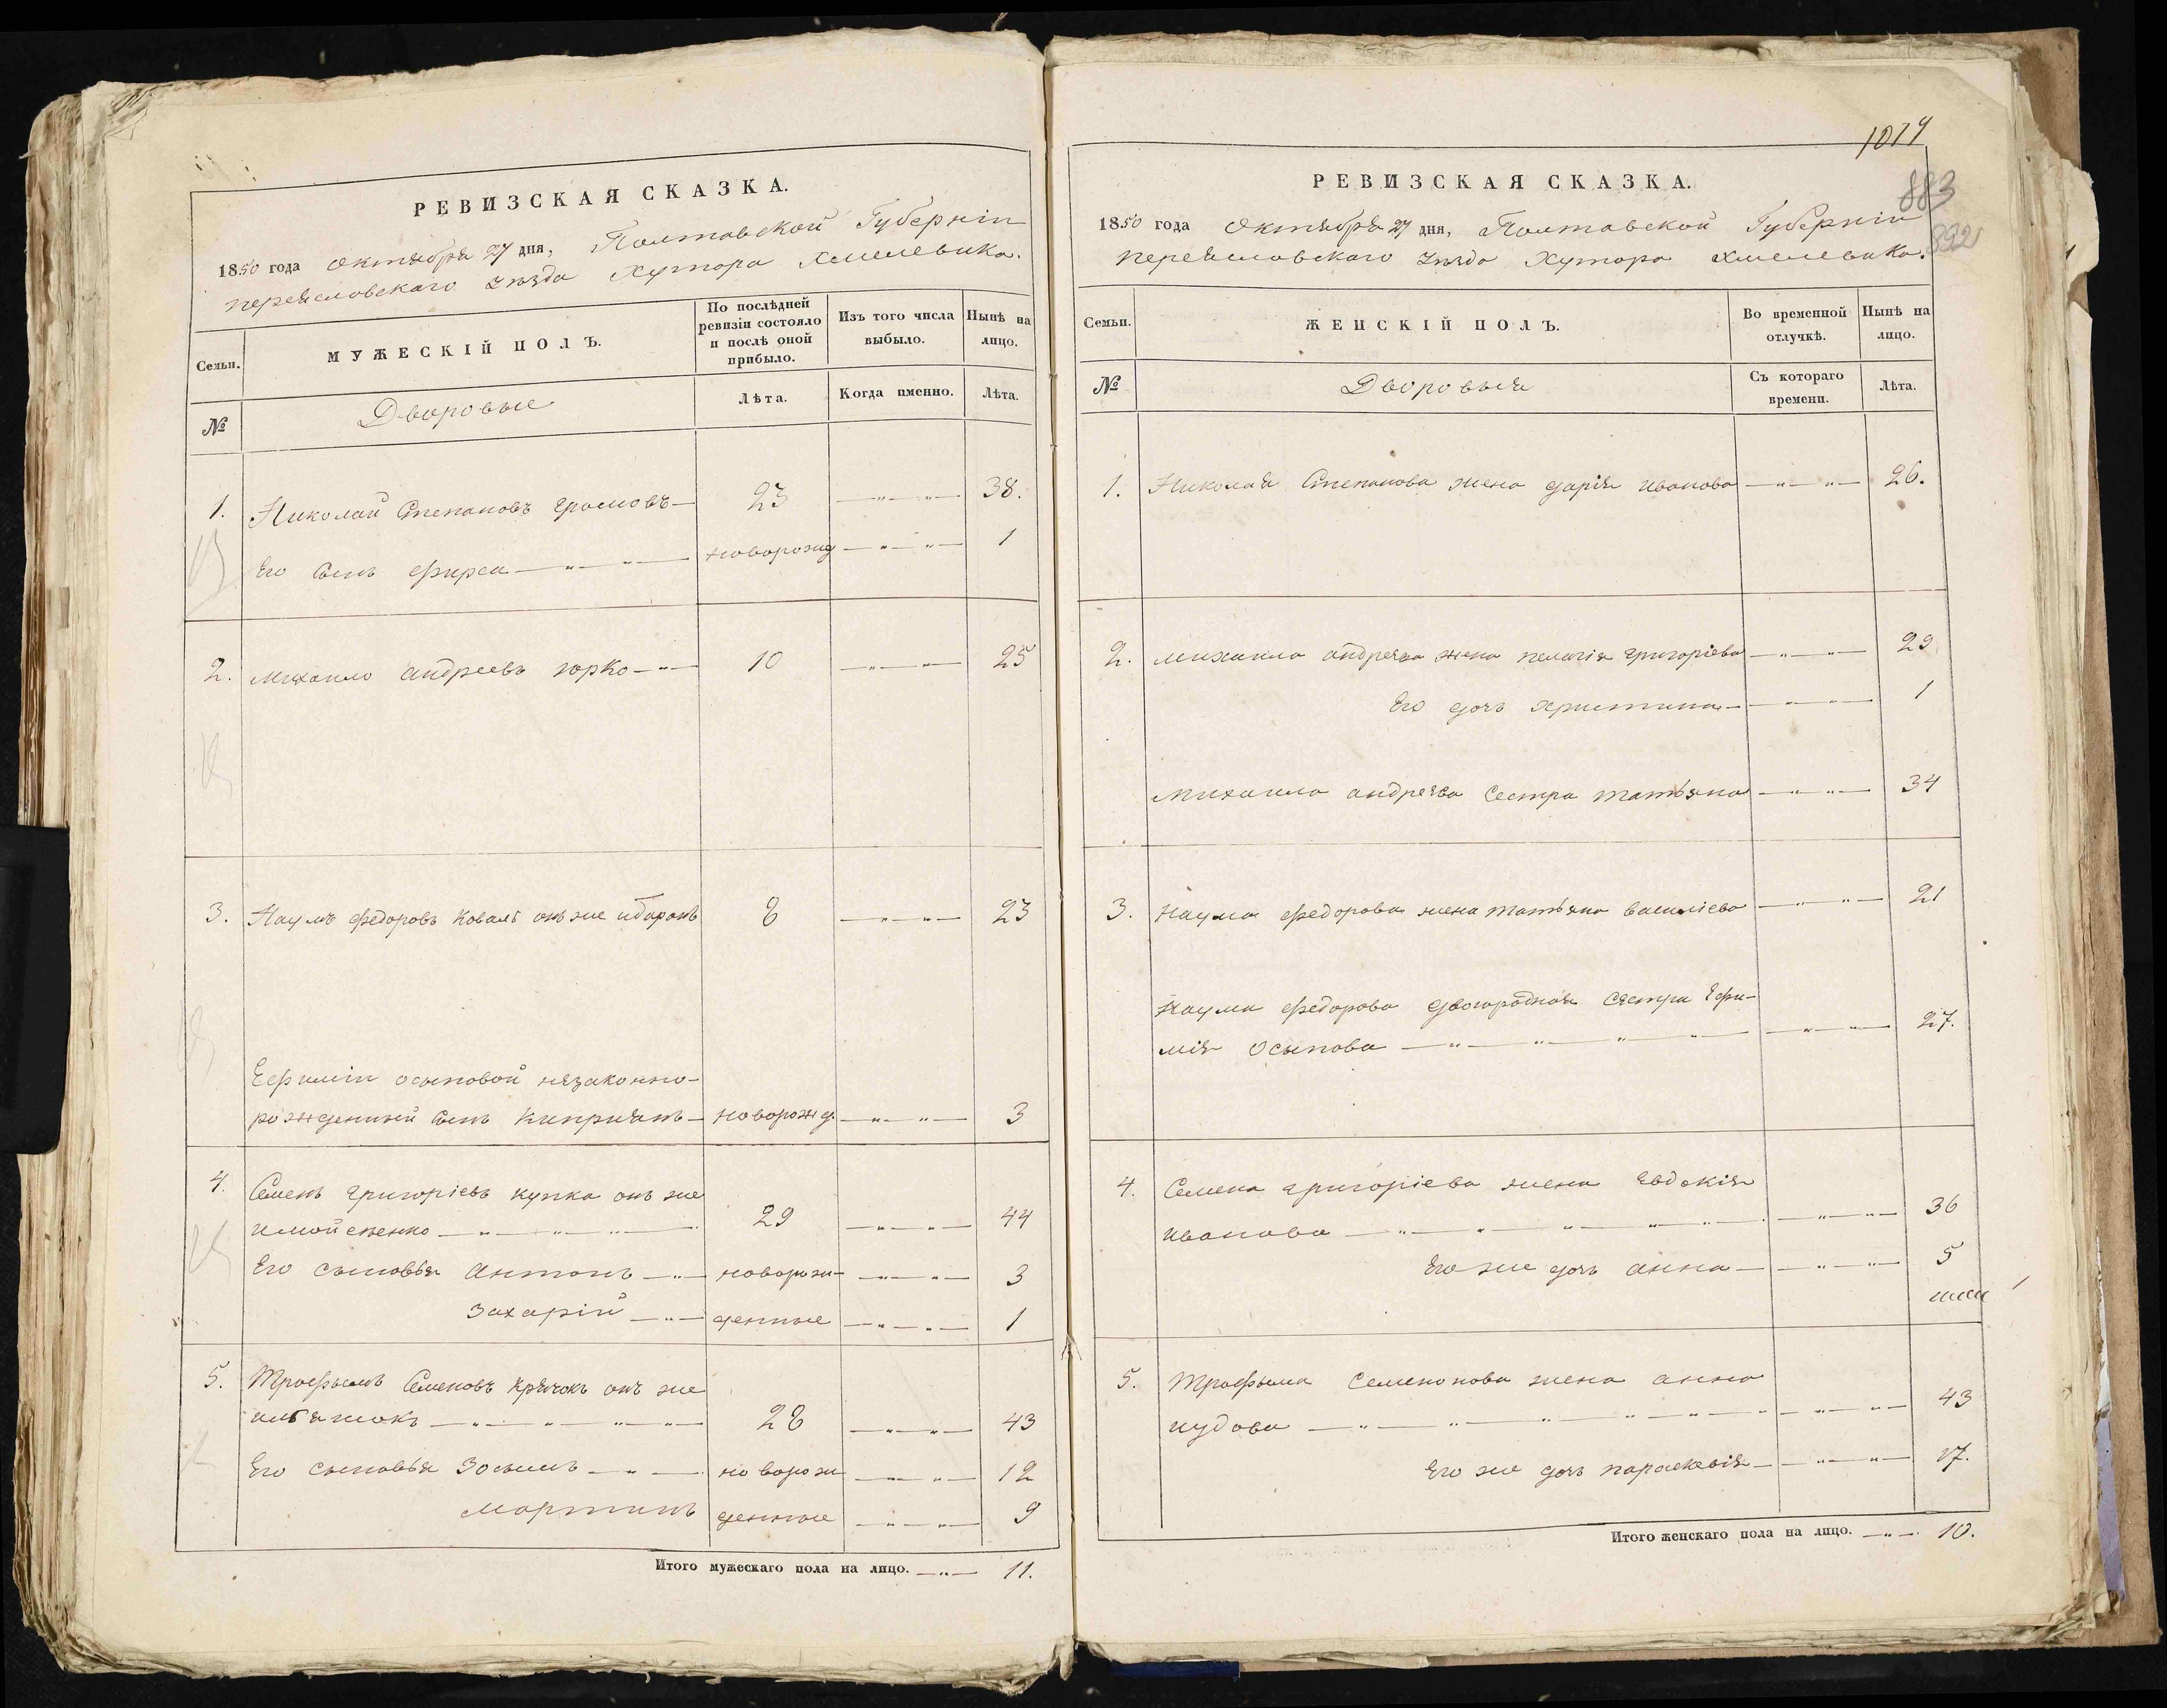 РЕВИЗСКАЯ СКАЗКА.
1850 года Октября 27 дня, Полтавской Губерніи
переясловскаго уѣзда Хутора Хмелевика.
Семьи.
МУЖЕСКІЙ ПОЛЪ.
По послѣдней ревизіи состояло и послѣ оной прибыло.
Изъ того числа выбыло.
Нынѣ на лицо.
№
Дворовые
Лѣта.
Когда именно.
Лѣта.
1. Николай Степановъ Громовъ — 23 — „ — „ — 38.
Его Сынъ фирси — „ — „ — новорожд — „ — „ — 1
2. Михаило андреевъ юрко — „ — 10 — „ — „ — 25
3. Наумъ федоровъ Коваль онъ же 8 — „ — „ — 23
Ефиміи осиповой незаконно-
рожденный Сынъ Киприянъ — новорожд. — „ — „ — 3
4. Семенъ григоріевъ купка онъ же
имойсеенко — „ — „ — „ — 29 — „ — „ — 44
Его сыновья антонъ — „ — новорож- — „ — „ — 3
Захарій — „ — денные — „ — „ — 1
5. Трофымъ Семеновъ крячокъ онъ же
— „ — „ — „ — „ — 28 — „ — „ — 43
Его сыновья Зосымъ — „ — новорож — „ — „ — 12
мортинъ денные — „ — „ — 9
Итого мужескаго пола на лицо. — „ — 11.
1074
883
892
РЕВИЗСКАЯ СКАЗКА.
1850 года Октября 27 дня, Полтавской Губерніи
переясловскаго уѣзда Хутора Хмелевика.
Семьи.
ЖЕНСКІЙ ПОЛЪ.
Во временной отлучкѣ.
Нынѣ на лицо.
№
Дворовыя
Съ котораго времени.
Лѣта.
1. Николая Степанова жена дарія иванова — „ — „ — 26.
2. михаила андреева жена пелагія григоріева — „ — „ — 29
Его дочь христина — — „ — „ — 1
михаила андреева сестра татьяна — „ — „ — 34
3. наума федорова жена татьяна василіева — „ — „ — 21
наума федорова двоюродная сестра Ефи-
мія осыпова — „ — „ — „ — „ — 27.
4. Семена григоріева жена Евдокія
иванова — „ — „ — „ — „ — „ — 36
Его же дочь анна — — „ — „ — 5
5. трофыма Семенонова жена анна
иудова — „ — „ — „ — „ — „ — 43
Его же дочь параскевія — — „ — „ — 17.
Итого женскаго пола на лицо. — „ — 10.